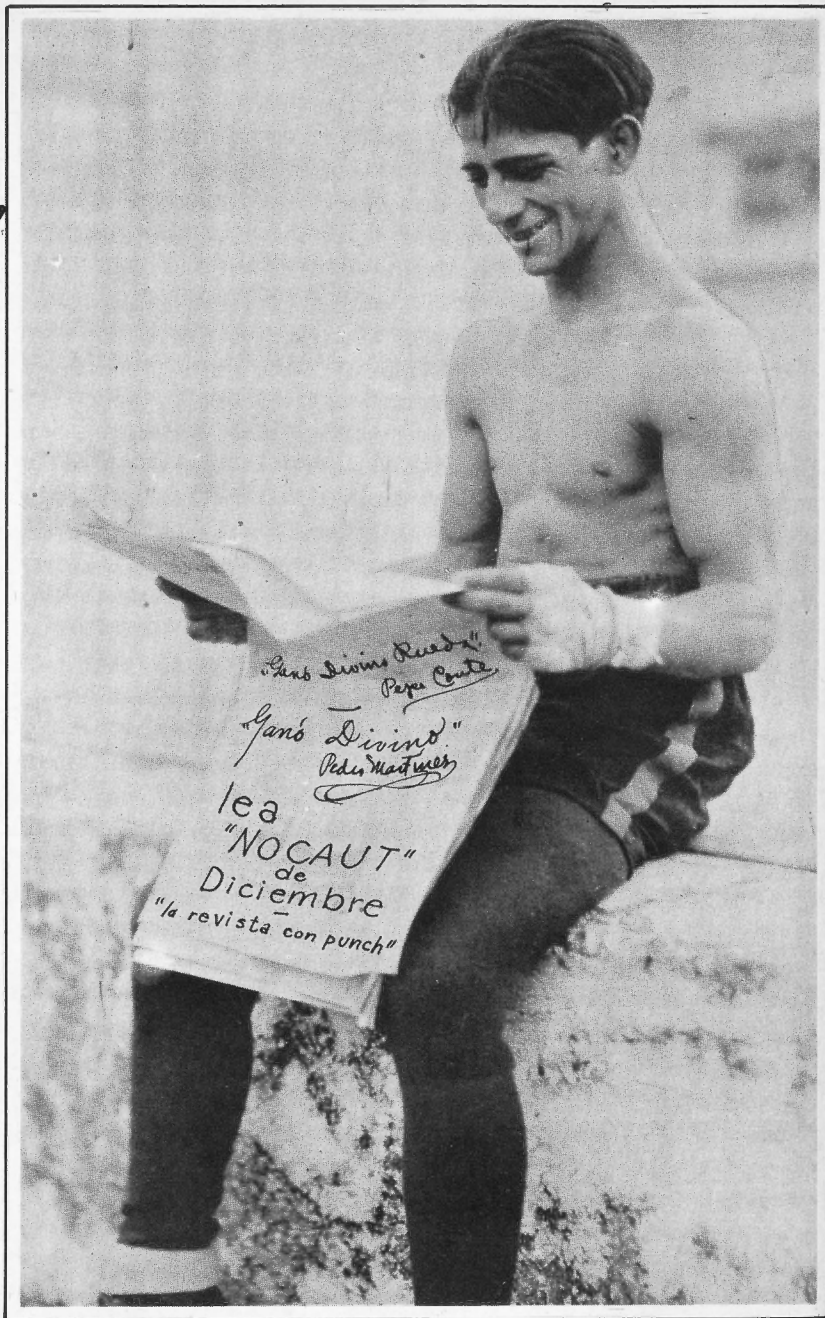 "Ganó Divino Rueda".
Pepe Conte
"Ganó Divino"
Pedro Martinez
lea
"NOCAUT"
de
Diciembre
"la revista con punch"